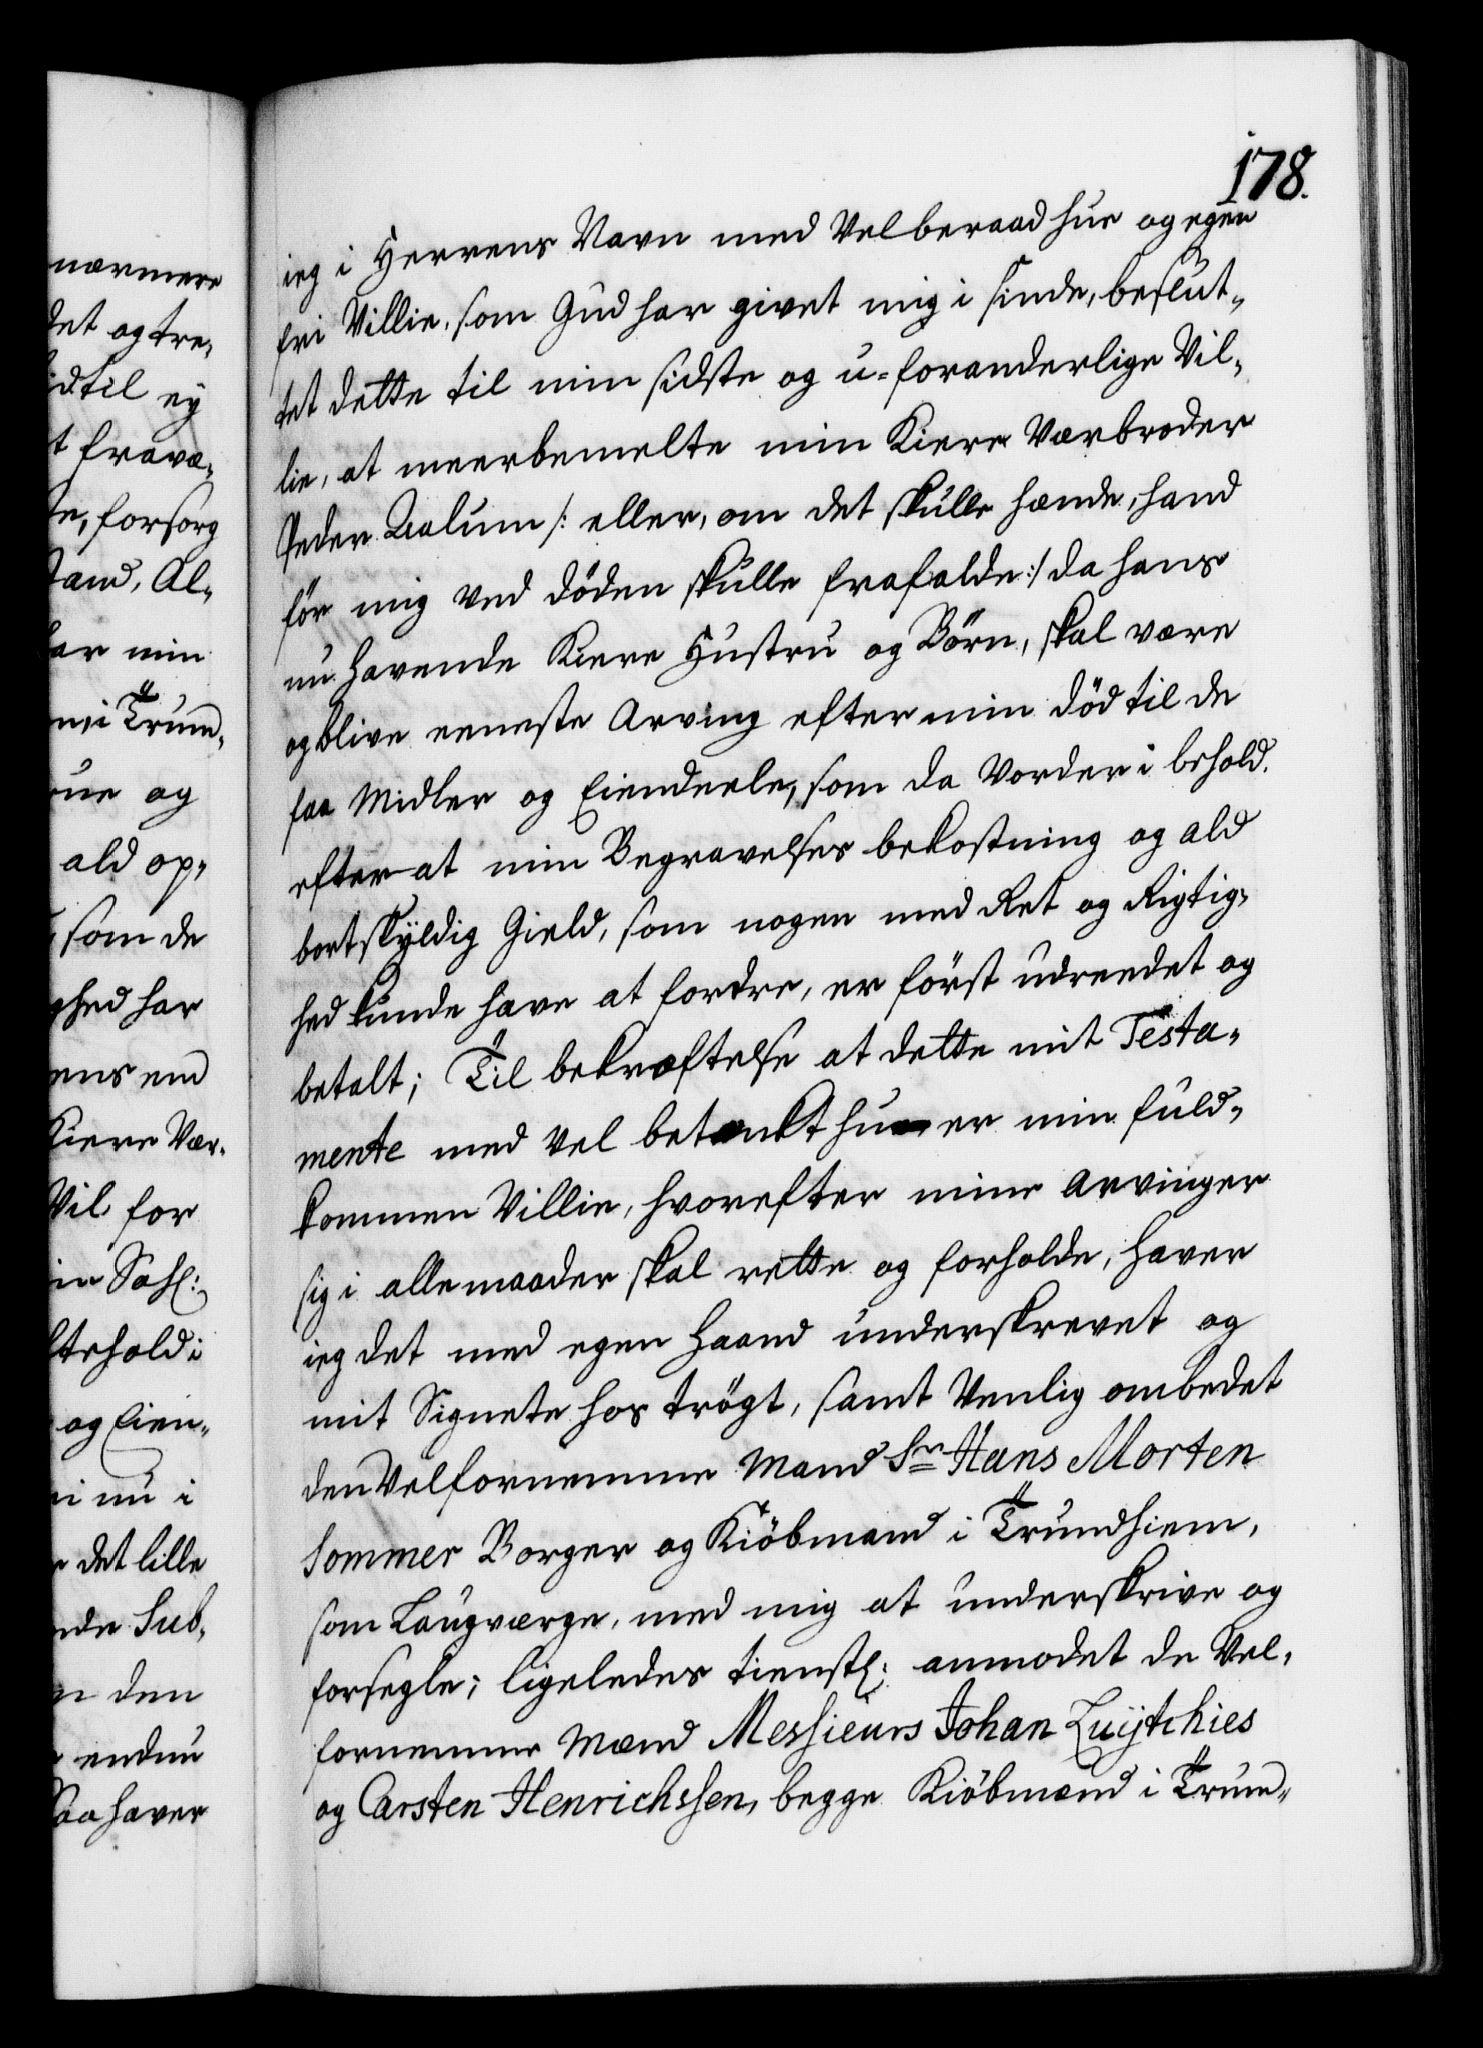 178.
nærmere
det og tre„
idtil ey
t fravæ„
de, forsørg
tand, Al„
har min
m i Trun„
rue og
ald op„
som de
ghed har
ens end
Kiere Vær„
Vil for
in Sahl:
lteholdi
og Eien„
ei nu i
det lille
nde Sub„
n den
endnu
Saa haver
ieg i Herrens Navn med Velberaad hue og egen
fri Villie, som Gud har givet mig i sinde, beslut„
tet dette til min sidste og u-foranderlige Vil„
lie, at meerbemelte min Kiere Værbroder
Peder Aalum /: eller, om det skulle hænde, hand
för mig ved döden skulle frafalde :/ da hans
nu havende Kiere Hustru og Börn, skal være
og blive eeneste Arving efter min död til de
faa Midler og Eiendeele, som da Vorder i behold.
efter at min Begravelses bekostning og ald
bortskyldig Gield, som nogen med Ret og Rigtig„
hed kunde have at fordre, er först udreedet og
betalt; Til bekræftelse at dette mit Testa„
mente med vel betænkt hu er min fuld„
kommen Villie, hvorefter mine Arvinger
sig i alle maader skal rette og forholde, haver
ieg det med egen Haand underskrevet og
mit Signete hos trögt, samt Venlig ombedet
den Velfornemme Mand Sr Hans Morten
Sommer Borger og Kiöbmand i Trundhiem,
som Laugværge, med mig at underskrive og
forsegle; ligeledes tienstl: anmodet de Vel„
fornemme Mænd Messieurs Johan Luÿtchies
og Carsten Henrichssen, begge Kiöbmænd i Trun„